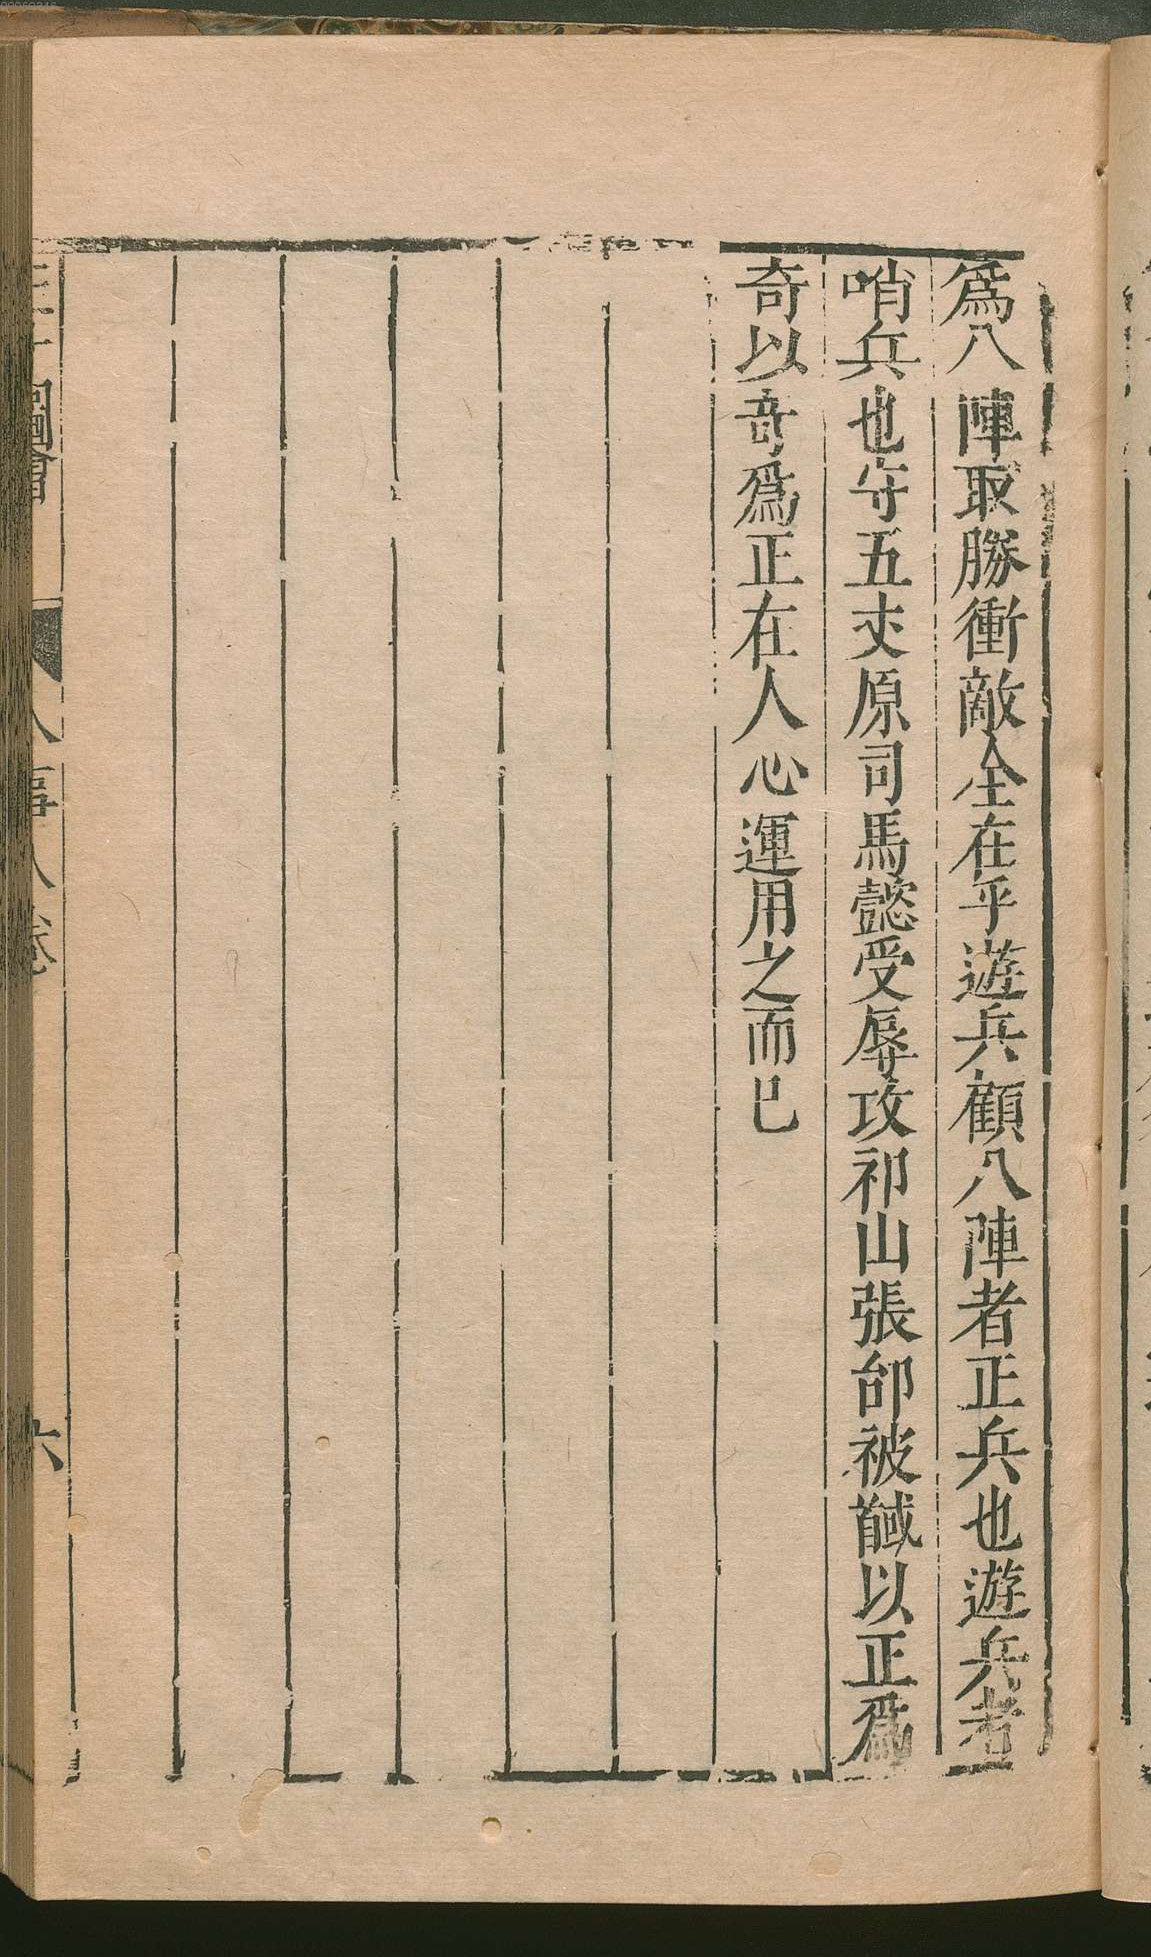 爲八陣取勝衝敵全在乎遊兵顧八陣者正兵也遊兵者
哨兵也守五丈原司馬懿受辱攻祁山張郃被馘以正爲
奇以竒爲正在人心運用之而已
三才圖會 人事八卷 六